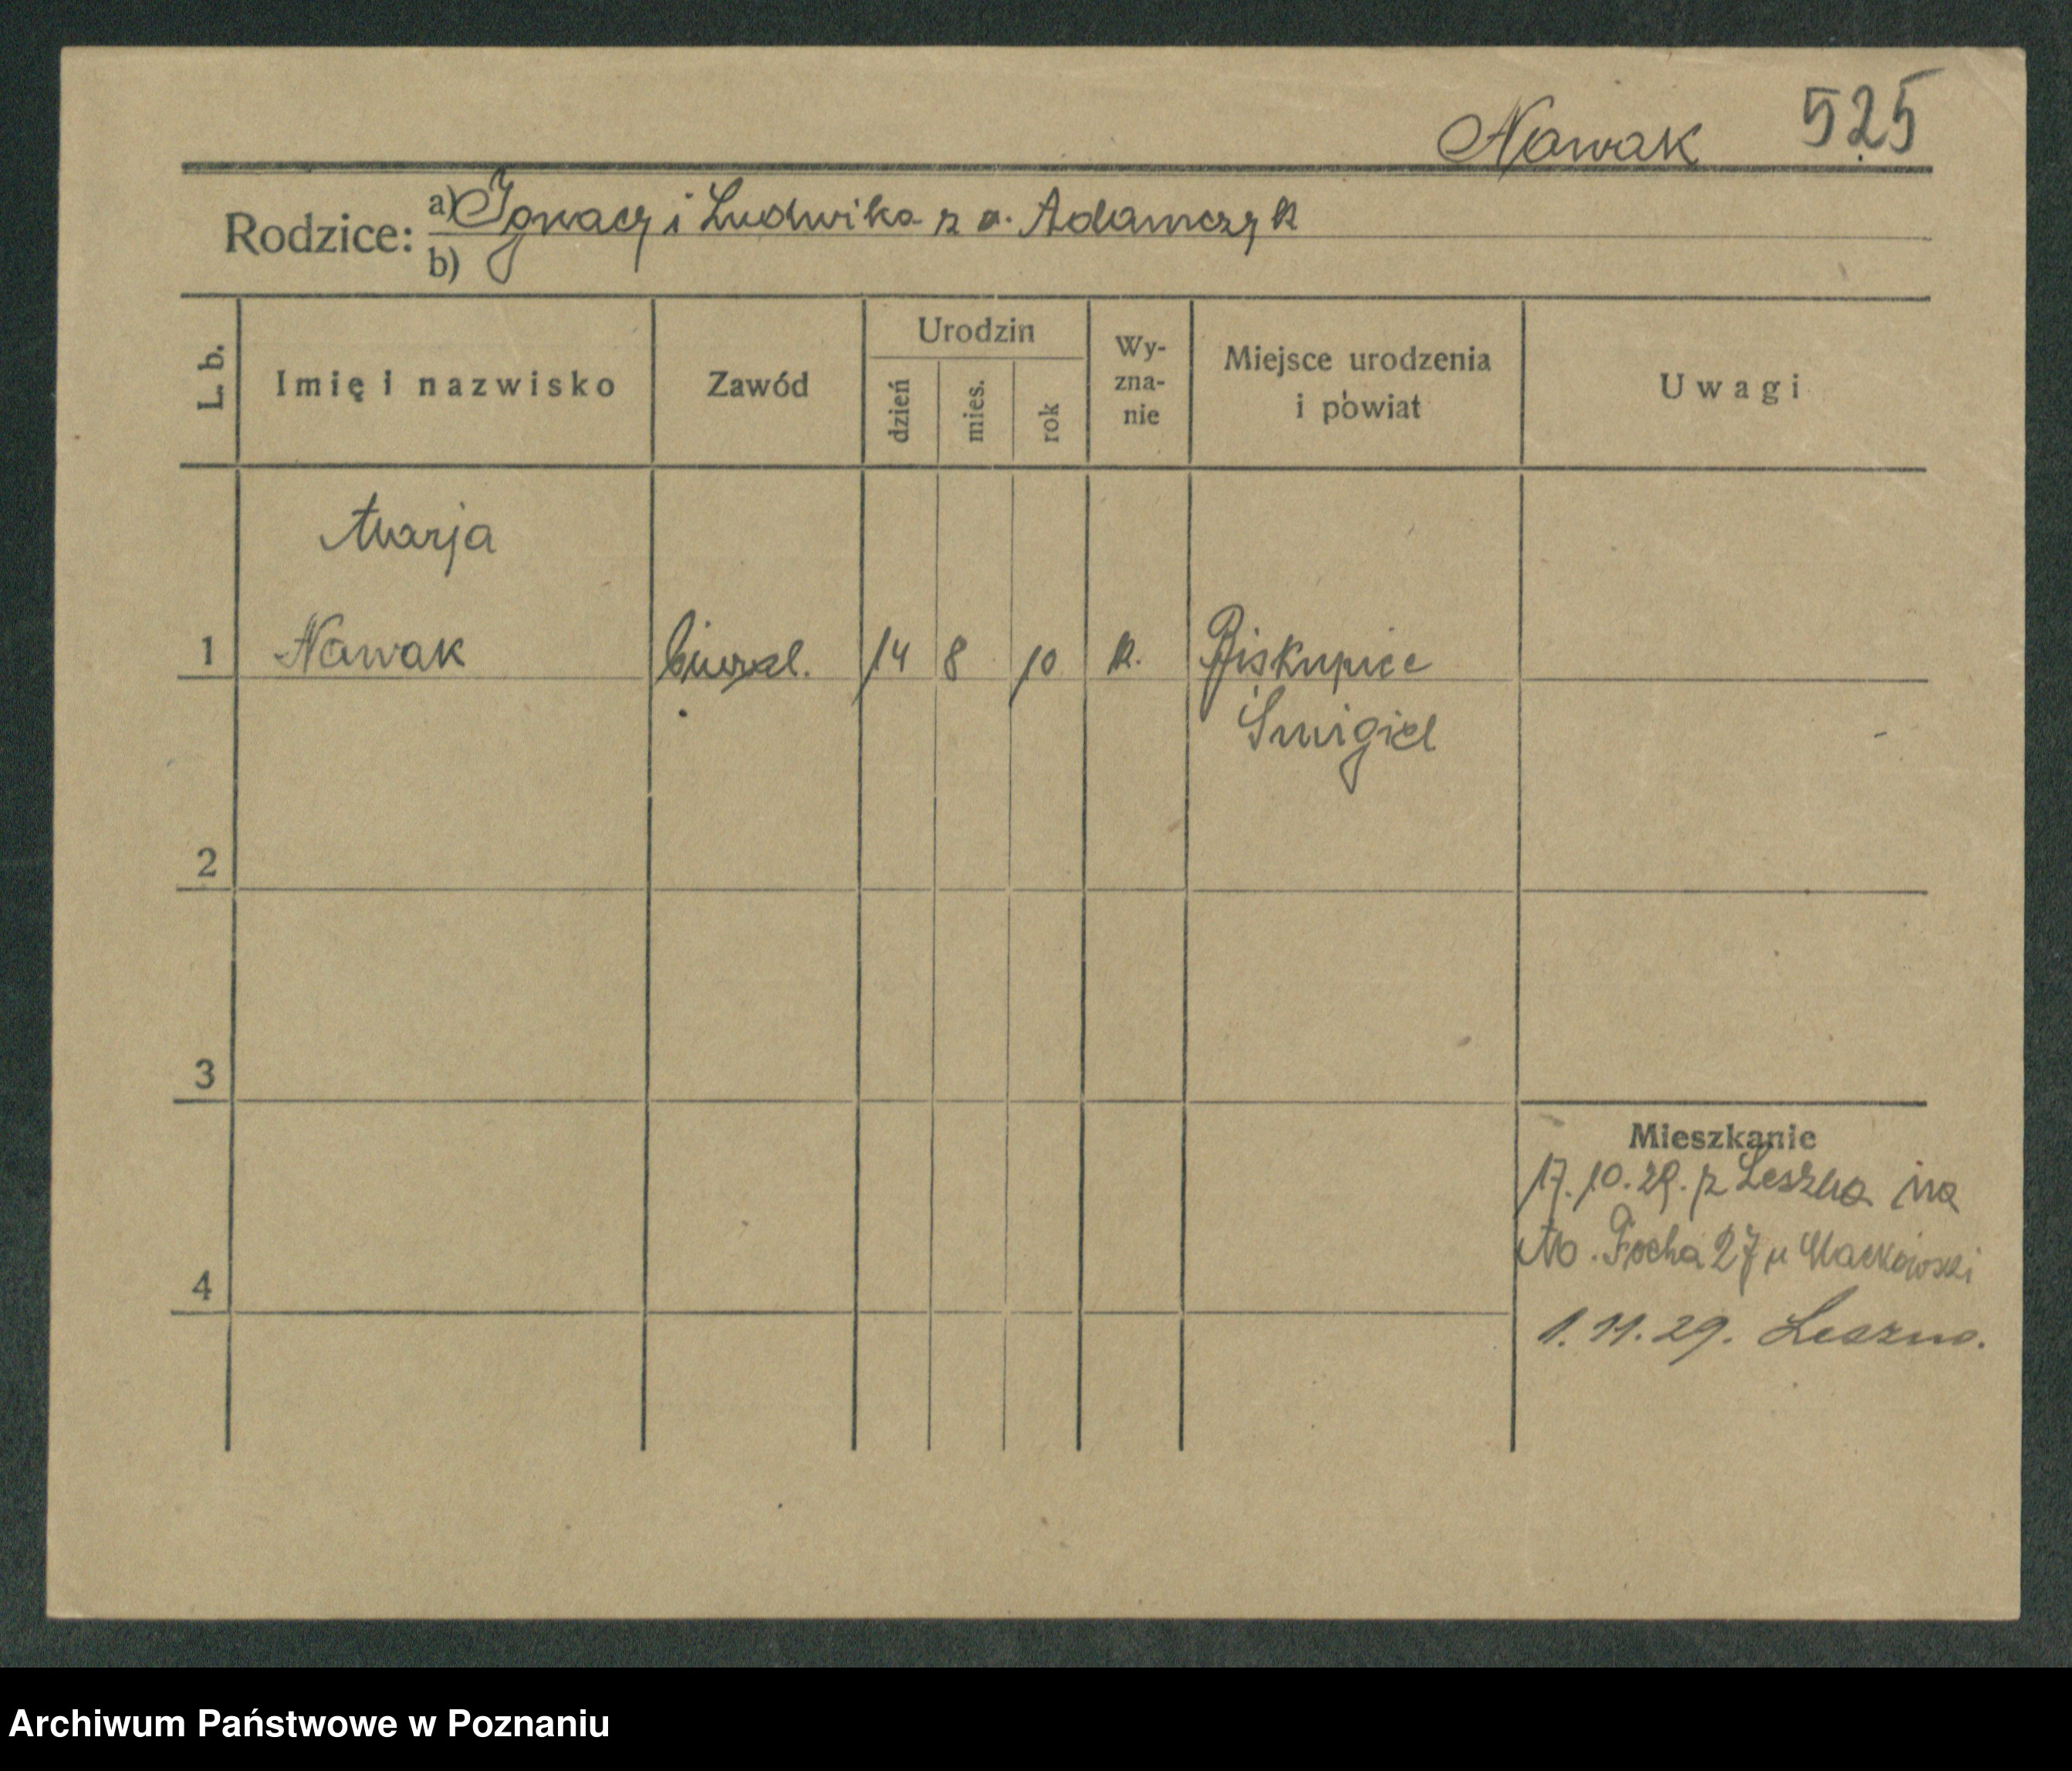 Nowak 525
Rodzice: a) Ignacy i Ludwika z d. Adamczyk
b)
L. b. Imię i nazwisko Zawód Urodzin dzień mies. rok Wy-zna-nie Miejsce urodzenia i powiat Uwagi
Marja
1 Nowak 14 8 10 k. Biskupice
Śmigiel
2
3
Mieszkanie
17.10.29. z Leszna na
M. Focha 27 u
4
1.11.29. Leszno.
Archiwum Państwowe w Poznaniu